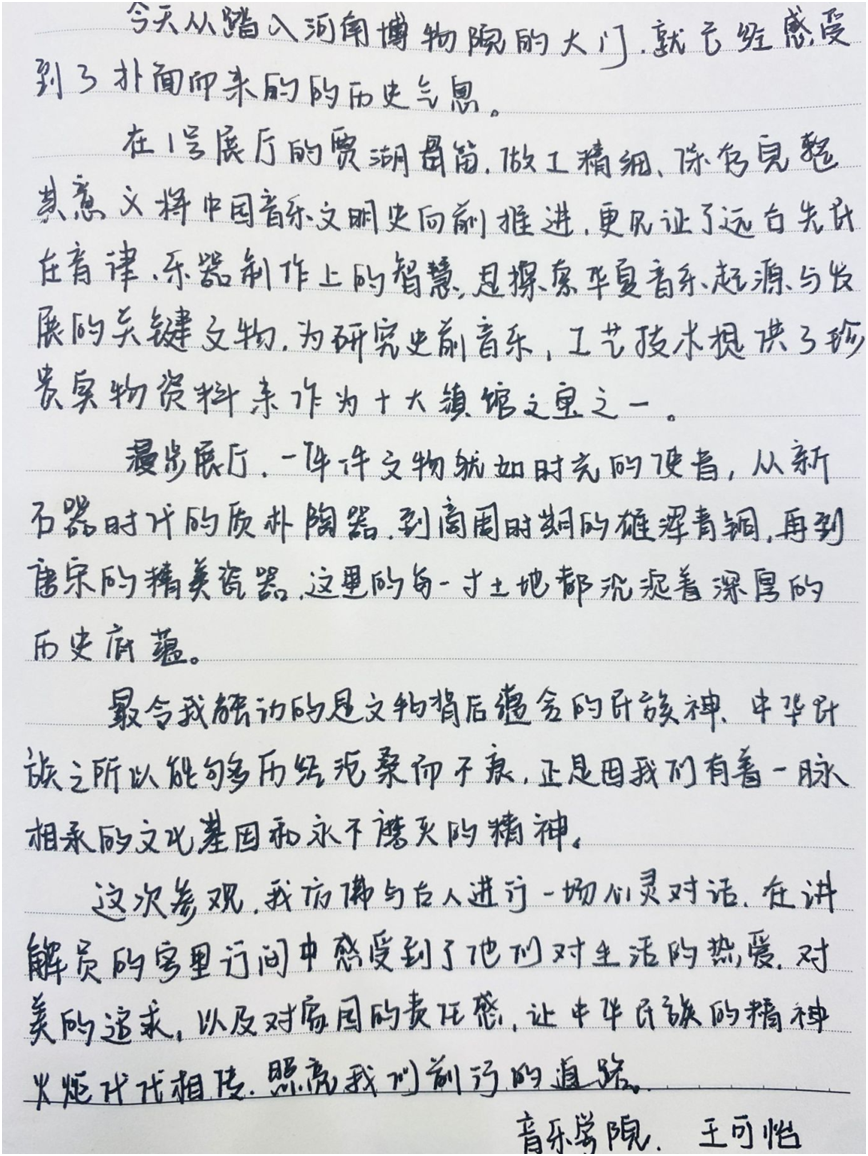 今天从踏入河南博物院的大门,就已经感受
到了扑面而来的的历史气息。
在1号展厅的贾湖骨笛,做工精细、保存完整
其意义将中国音乐文明史向前推进,更见证了远古先民
在音律、乐器制作上的智慧,是探索华夏音乐起源与发
展的关键文物,为研究史前音乐,工艺技术提供了珍
贵实物资料来作为十大镇馆之宝之一。
漫步展厅,一件件文物犹如时光的使者,从新
石器时代的质朴陶器,到商周时期的雄浑青铜,再到
唐宋的精美瓷器,这里的每一寸土地都沉淀着深厚的
历史底蕴。
最令我触动的是文物背后蕴含的民族神、中华民
族之所以能够历经沧桑而不衰,正是因我们有着一脉
相承的文化基因和永不磨灭的精神。
这次参观,我仿佛与古人进行一场心灵对话,在讲
解员的字里行间中感受到了他们对生活的热爱,对
美的追求,以及对家国的责任感,让中华民族的精神
火炬代代相传,照亮我们前行的道路。
音乐学院. 王可怡